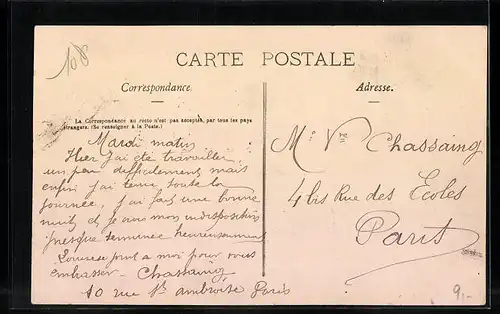 108
CARTE POSTALE
Correspondance.
Adresse.
La Correspondance au recto n'est pas acceptée par tous les pays
étrangers. (Se renseigner à la Poste.)
Mardi matin
Hier j'ai été travailler
un peu difficilement mais
enfin j'ai tenu toute la
journée, j'ai fait une bonne
nuit et je crois mon indisposition
presque terminée heureusement
Louise se joint a moi pour vous
embrasser - Chassaing
10 rue St ambroise Paris
Chassaing
4 bis Rue des Ecoles
Paris
9.-